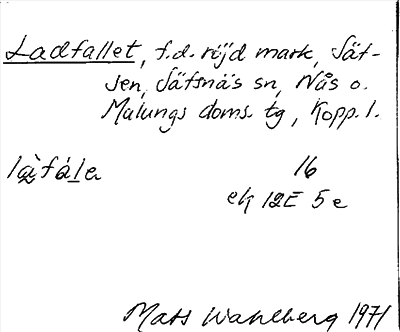 Ladfallet, f.d. röjd mark, Sät-
sen, Säfsnäs sn, Nås o.
Malungs doms. tg, Kopp. l.
16
ek 12E 5e
Mats Wahlberg 1971